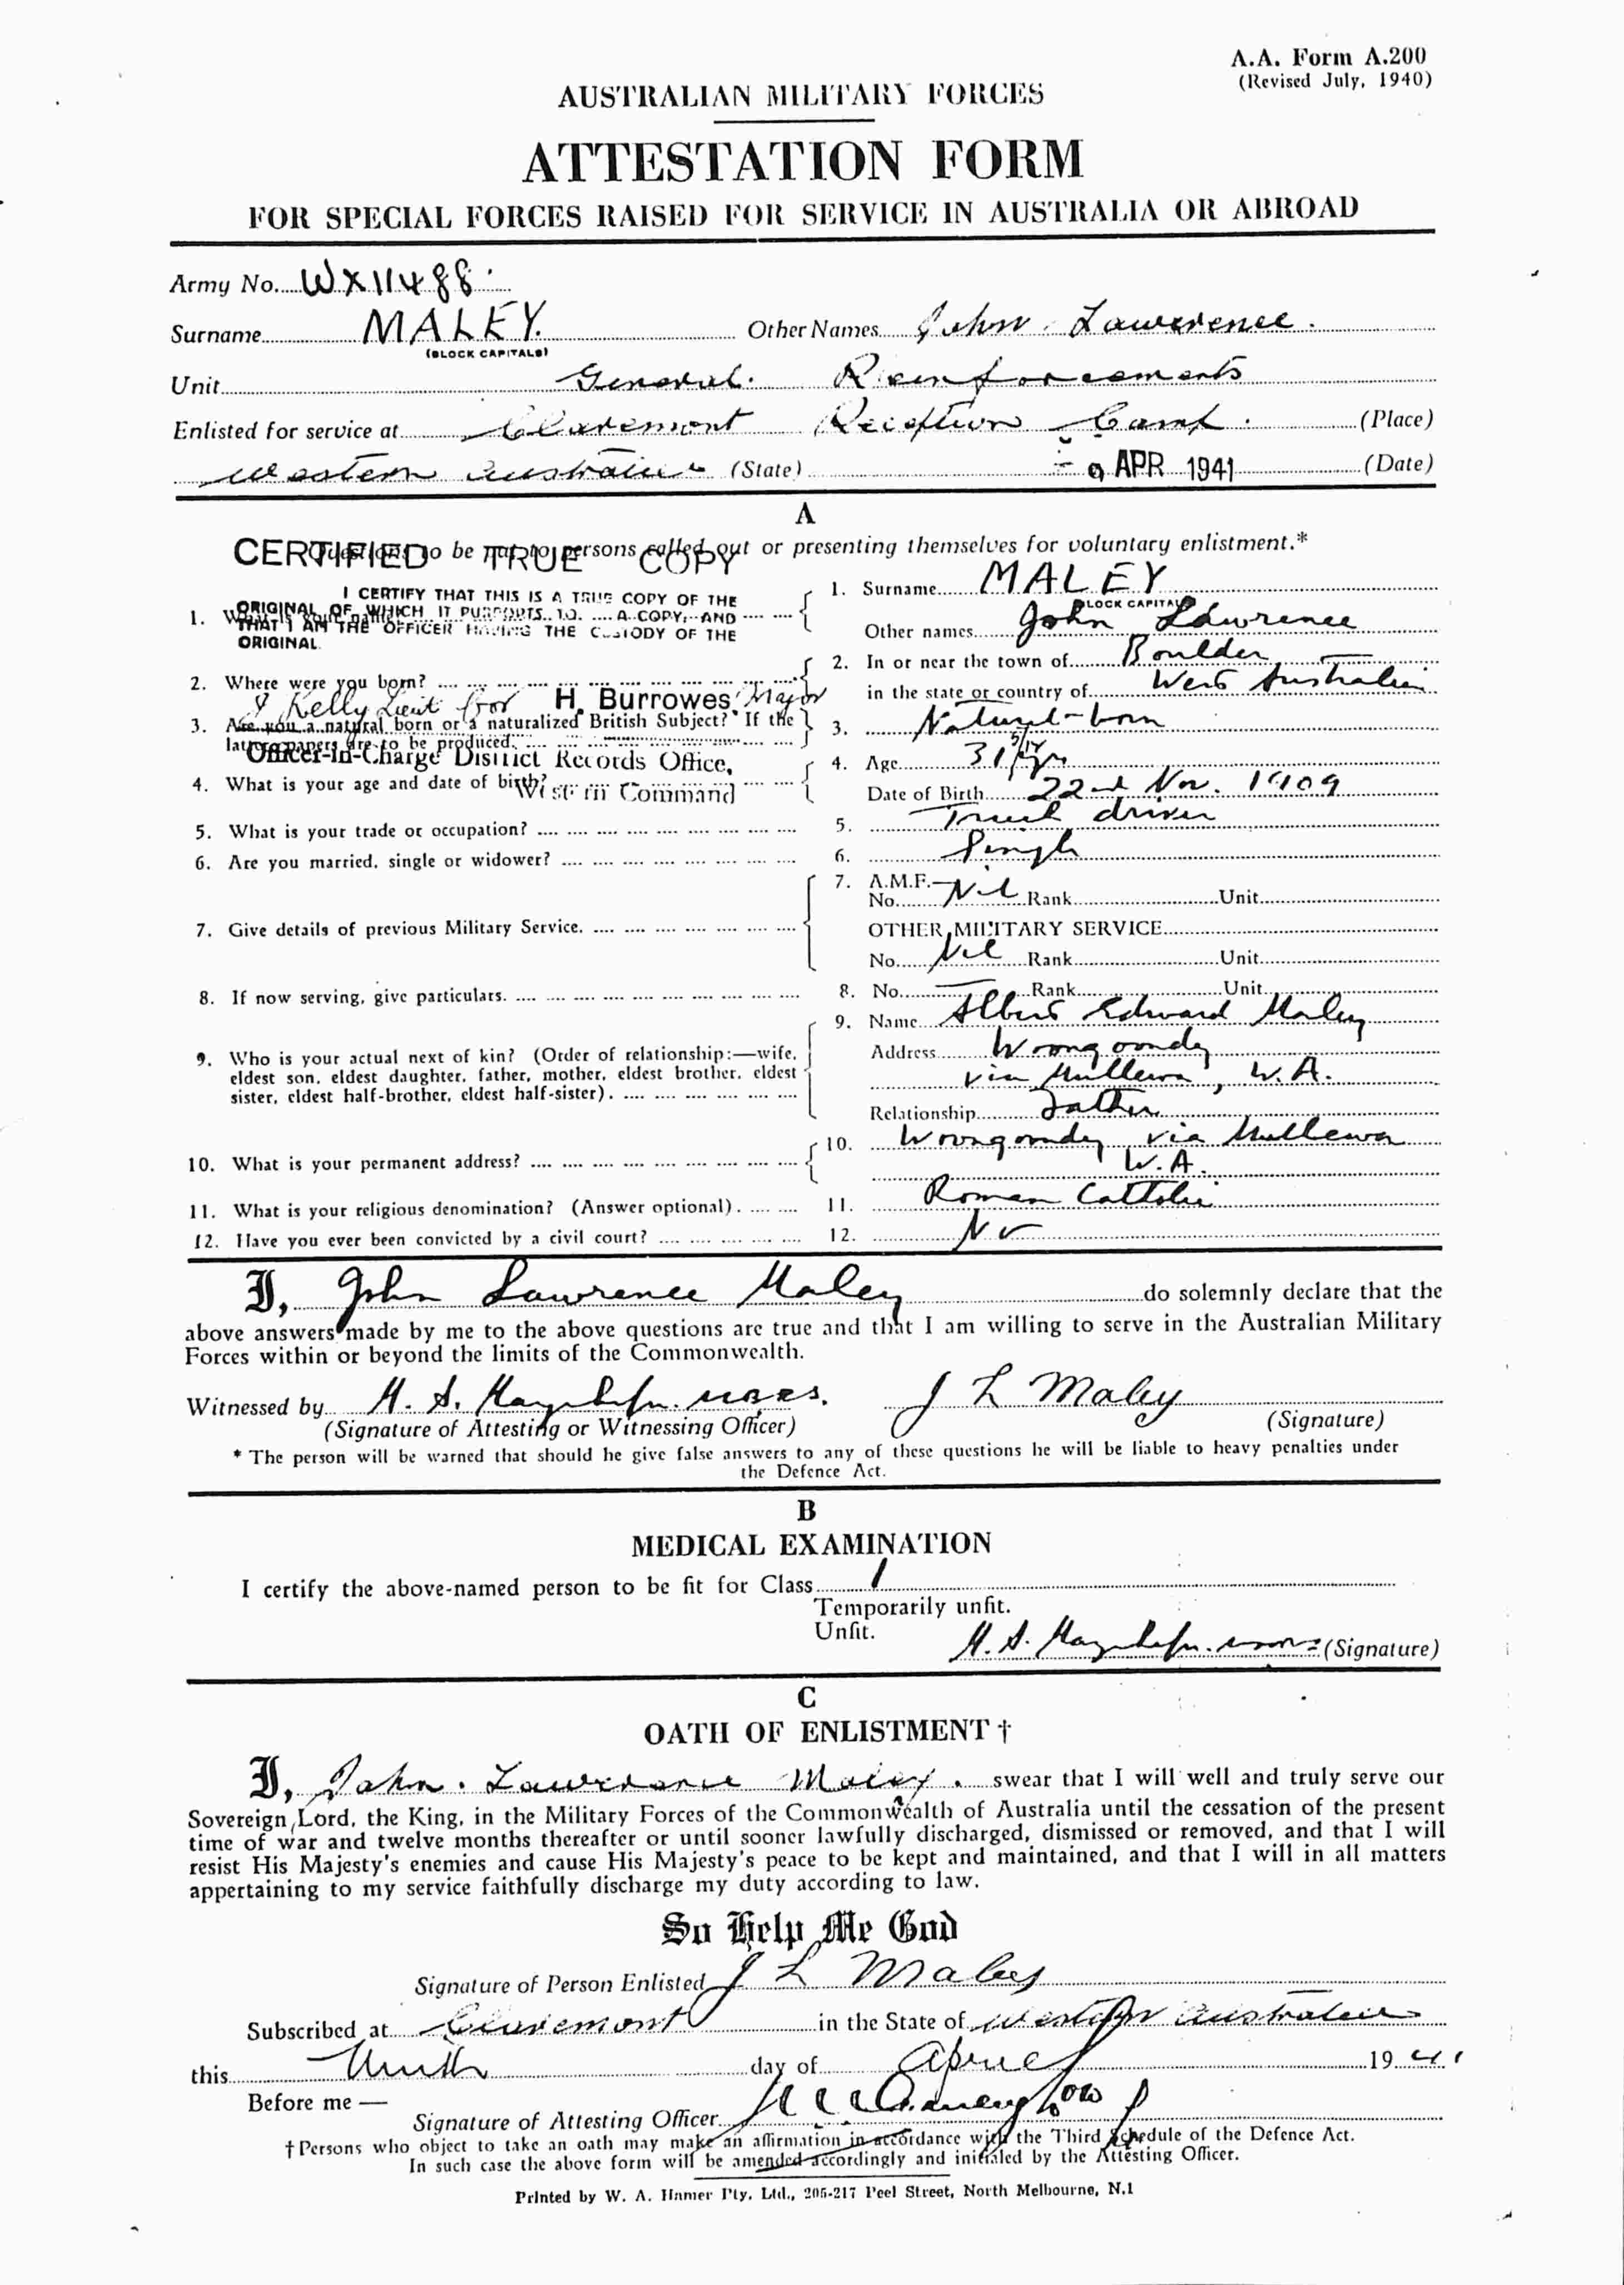 A.A. Form A.200
(Revised July, 1940)
AUSTRALIAN MILITARY FORCES
ATTESTATION FORM
FOR SPECIAL FORCES RAISED FOR SERVICE IN AUSTRALIA OR ABROAD
Army No. WX11488.
Surname MALEY. Other Names John Lawrence.
(BLOCK CAPITALS)
Unit General Reinforcements
Enlisted for service at Claremont Reception Camp. (Place)
Western Australia (State) - 9 APR 1941 (Date)
A
Questions to be put to persons called out or presenting themselves for voluntary enlistment.*
CERTIFIED TRUE COPY
I CERTIFY THAT THIS IS A TRUE COPY OF THE
ORIGINAL OF WHICH IT PURPORTS TO A COPY, AND
THAT I AM THE OFFICER HAVING THE CUSTODY OF THE
ORIGINAL.
1. What is your name? 1. Surname MALEY
BLOCK CAPITALS
Other names John Lawrence
2. Where were you born? 2. In or near the town of Boulder
in the state or country of West Australia
Kelly Lieut for H. Burrowes Major
3. Are you a natural born or a naturalized British Subject? If the 3. Natural-born
latter papers are to be produced.
Officer-in-Charge District Records Office,
Western Command
4. What is your age and date of birth? 4. Age 31 5/12 yrs
Date of Birth 22nd Nov. 1909
5. What is your trade or occupation? 5. Truck driver
6. Are you married, single or widower? 6. Single
7. Give details of previous Military Service. 7. A.M.F.—
No. Nil Rank Unit
OTHER MILITARY SERVICE
No. Nil Rank Unit
8. If now serving, give particulars. 8. No. — Rank Unit
9. Who is your actual next of kin? (Order of relationship:—wife, 9. Name Albert Edward Maley
eldest son, eldest daughter, father, mother, eldest brother, eldest Address Woongoondy
sister, eldest half-brother, eldest half-sister). via Mullewa, W.A.
Relationship Father
10. What is your permanent address? 10. Woongoondy via Mullewa
W.A.
11. What is your religious denomination? (Answer optional). 11. Roman Catholic
12. Have you ever been convicted by a civil court? 12. No
I, John Lawrence Maley do solemnly declare that the
above answers made by me to the above questions are true and that I am willing to serve in the Australian Military
Forces within or beyond the limits of the Commonwealth.
Witnessed by H. S. J L Maley
(Signature of Attesting or Witnessing Officer) (Signature)
* The person will be warned that should he give false answers to any of these questions he will be liable to heavy penalties under
the Defence Act.
B
MEDICAL EXAMINATION
I certify the above-named person to be fit for Class 1
Temporarily unfit.
Unfit.
H. S. (Signature)
C
OATH OF ENLISTMENT †
I, John Lawrence Maley. swear that I will well and truly serve our
Sovereign Lord, the King, in the Military Forces of the Commonwealth of Australia until the cessation of the present
time of war and twelve months thereafter or until sooner lawfully discharged, dismissed or removed, and that I will
resist His Majesty's enemies and cause His Majesty's peace to be kept and maintained, and that I will in all matters
appertaining to my service faithfully discharge my duty according to law.
So Help Me God
Signature of Person Enlisted J L Maley
Subscribed at Claremont in the State of Western Australia
this Ninth day of April 1941
Before me —
Signature of Attesting Officer
† Persons who object to take an oath may make an affirmation in accordance with the Third Schedule of the Defence Act.
In such case the above form will be amended accordingly and initialed by the Attesting Officer.
Printed by W. A. Hamer Pty. Ltd., 205-217 Peel Street, North Melbourne, N.1